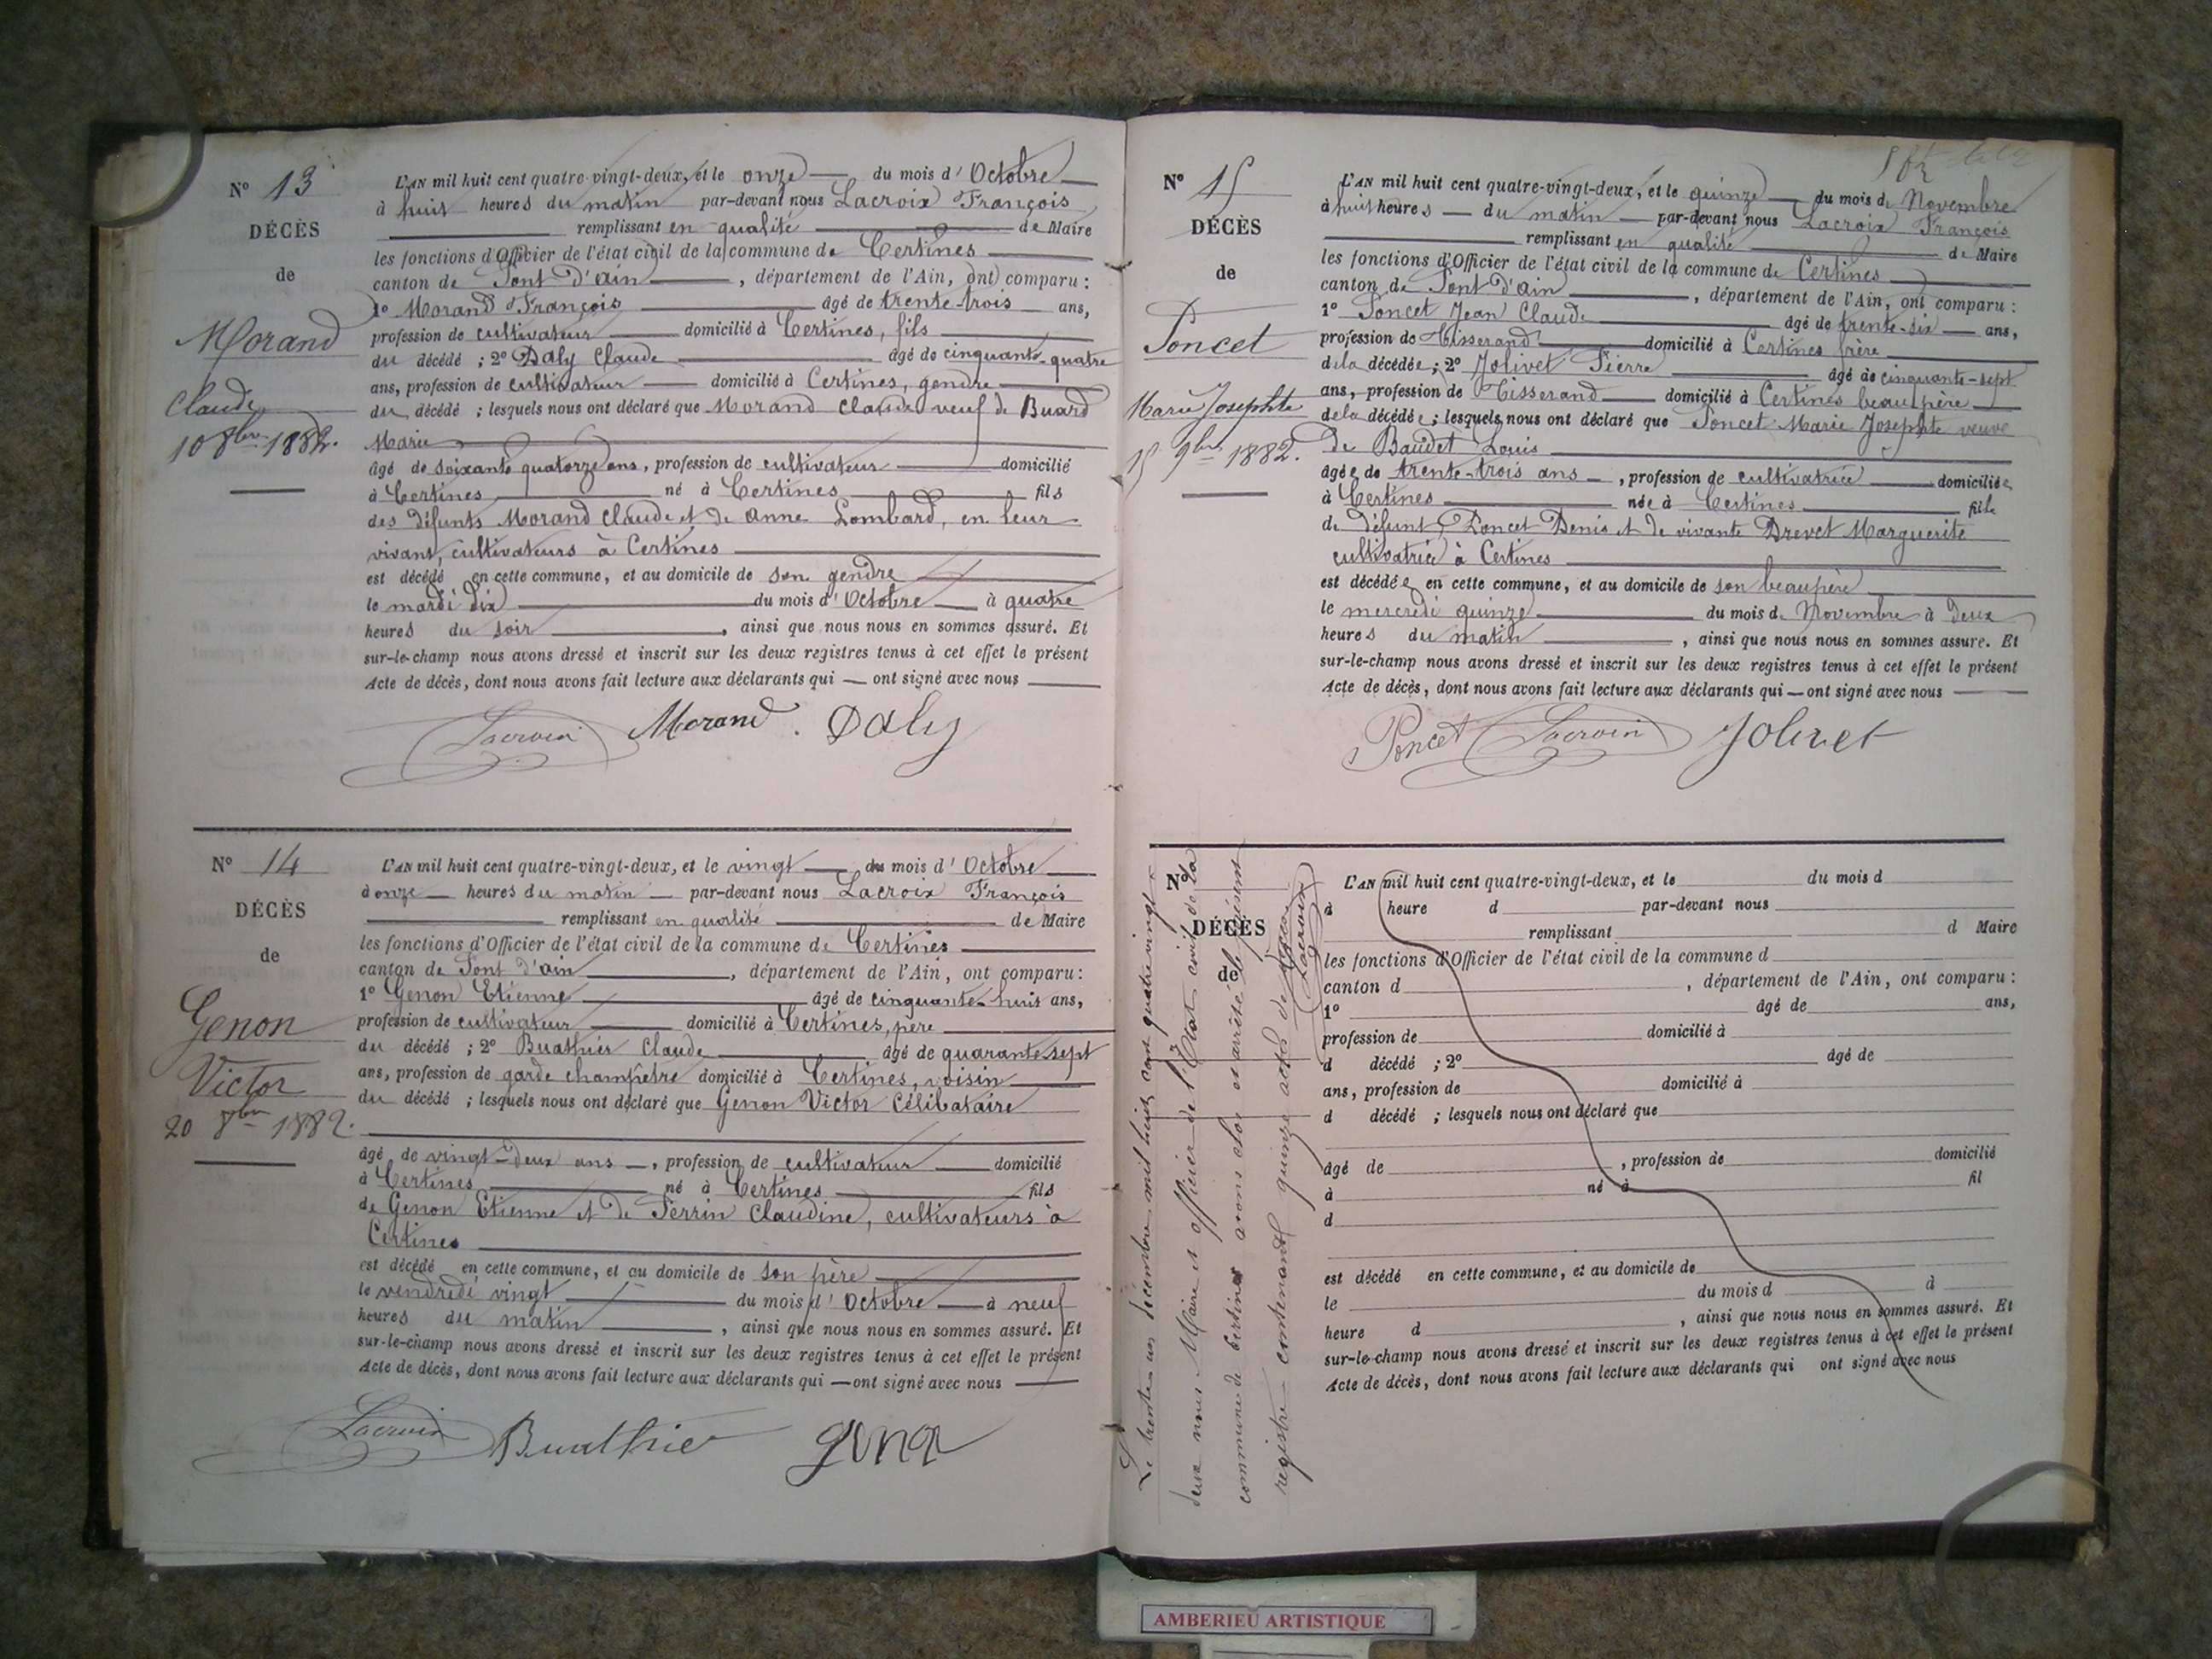 N° 13
DÉCÈS
de
Morand
Claude
10 8bre 1882.
L'AN mil huit cent quatre-vingt-deux, et le onze du mois d'Octobre
à huit heures du matin par-devant nous Lacroix François
remplissant en qualité de Maire
les fonctions d'Officier de l'état civil de la commune de Certines
canton de Pont d'ain, département de l'Ain, ont comparu :
1° Morand François âgé de trente-trois ans,
profession de cultivateur domicilié à Certines, fils
du décédé ; 2° Daly Claude âgé de cinquante-quatre
ans, profession de cultivateur domicilié à Certines, gendre
du décédé ; lesquels nous ont déclaré que Morand Claude veuf de Buard
Marie
âgé de soixante quatorze ans, profession de cultivateur domicilié
à Certines né à Certines fils
des défunts Morand Claude et de Anne Lombard, en leur
vivant, cultivateurs à Certines
est décédé en cette commune, et au domicile de son gendre
le mardi dix du mois d'Octobre à quatre
heures du soir, ainsi que nous nous en sommes assuré. Et
sur-le-champ nous avons dressé et inscrit sur les deux registres tenus à cet effet le présent
Acte de décès, dont nous avons fait lecture aux déclarants qui — ont signé avec nous
Lacroix Morand. Daly
N° 14
DÉCÈS
de
Genon
Victor
20 8bre 1882.
L'AN mil huit cent quatre-vingt-deux, et le vingt du mois d'Octobre
à onze heures du matin par-devant nous Lacroix François
remplissant en qualité de Maire
les fonctions d'Officier de l'état civil de la commune de Certines
canton de Pont d'ain, département de l'Ain, ont comparu :
1° Genon Etienne âgé de cinquante-huit ans,
profession de cultivateur domicilié à Certines, père
du décédé ; 2° Buathier Claude âgé de quarante-sept
ans, profession de garde champêtre domicilié à Certines, voisin
du décédé ; lesquels nous ont déclaré que Genon Victor Célibataire
âgé de vingt-deux ans —, profession de cultivateur domicilié
à Certines né à Certines fils
de Genon Etienne et de Perrin Claudine, cultivateurs à
Certines
est décédé en cette commune, et au domicile de son père
le vendredi vingt du mois d'Octobre à neuf
heures du matin, ainsi que nous nous en sommes assuré. Et
sur-le-champ nous avons dressé et inscrit sur les deux registres tenus à cet effet le présent
Acte de décès, dont nous avons fait lecture aux déclarants qui — ont signé avec nous
Lacroix Buathier
N° 15
DÉCÈS
de
Poncet
Marie Josephte
15 9bre 1882.
L'AN mil huit cent quatre-vingt-deux, et le quinze du mois de Novembre
à huit heures — du matin — par-devant nous Lacroix François
remplissant en qualité de Maire
les fonctions d'Officier de l'état civil de la commune de Certines
canton de Pont d'ain, département de l'Ain, ont comparu :
1° Poncet Jean Claude âgé de trente-six ans,
profession de Tisserand domicilié à Certines frère
de la décédée ; 2° Jolivet Pierre âgé de cinquante-sept
ans, profession de Tisserand domicilié à Certines beau père
de la décédée ; lesquels nous ont déclaré que Poncet Marie Josephte veuve
de Baudet Louis
âgée de trente-trois ans —, profession de cultivatrice domiciliée
à Certines née à Certines fille
de défunt Poncet Denis et de vivante Brevet Marguerite
cultivatrice à Certines
est décédée en cette commune, et au domicile de son beau père
le mercredi quinze du mois de Novembre à deux
heures du matin, ainsi que nous nous en sommes assuré. Et
sur-le-champ nous avons dressé et inscrit sur les deux registres tenus à cet effet le présent
Acte de décès, dont nous avons fait lecture aux déclarants qui — ont signé avec nous
Poncet Lacroix Jolivet
N°
DÉCÈS
de
Le trente-un décembre mil huit cent quatre vingt-
deux nous Maire et officier de l'Etat civil de la
commune de Certines avons clos et arrêté le présent
registre contenant quinze actes de décès
Lacroix
L'AN mil huit cent quatre-vingt-deux, et le du mois d
à heure d par-devant nous
remplissant d Maire
les fonctions d'Officier de l'état civil de la commune d
canton d , département de l'Ain, ont comparu :
1° âgé de ans,
profession de domicilié à
d décédé ; 2° âgé de
ans, profession de domicilié à
d décédé ; lesquels nous ont déclaré que
âgé de , profession de domicilié
à né à fil
d
est décédé en cette commune, et au domicile de
le du mois d à
heure d , ainsi que nous nous en sommes assuré. Et
sur-le-champ nous avons dressé et inscrit sur les deux registres tenus à cet effet le présent
Acte de décès, dont nous avons fait lecture aux déclarants qui ont signé avec nous
AMBERIEU ARTISTIQUE